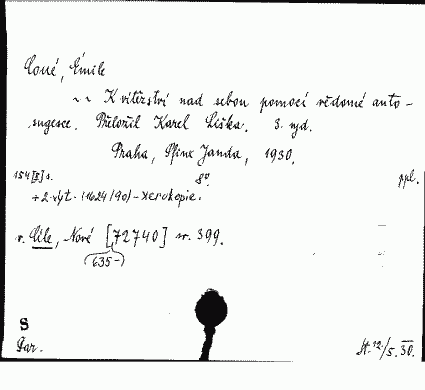 Coué, Émile
K vítězství nad sebou pomocí vědomé auto-
sugesce. Přeložil Karel Liška. 3. vyd.
Praha, Sfinx Janda, 1930.
154[II] s. 8°. ppl.
+ 2. výt. (1624/90) - xerokopie.
v. Cíle, Nové [72740] sv. 399.
(635-)
S
Dar. St. 12/5. 30.